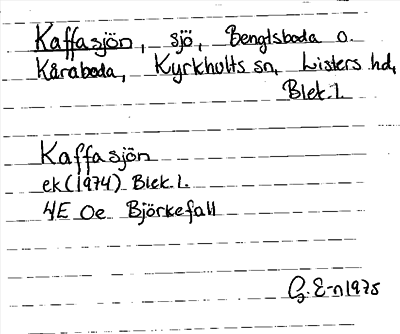 Kaffasjön, sjö, Bengtsboda o.
Kåraboda, Kyrkhults sn, Listers hd,
Blek. l.
Kaffasjön
ek (1974) Blek. l.
4E Oe Björkefall
G. E-n 1975